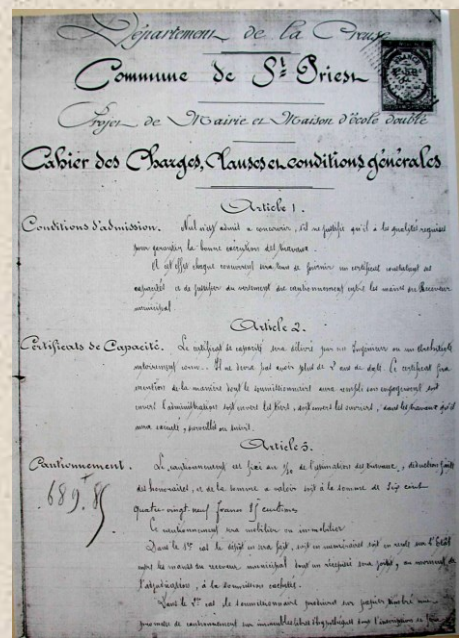 Département de la Creuse
Commune de St Priest
Projet de Mairie et Maison d'école double
Cahier des Charges, Clauses et conditions générales
Article 1.
Conditions d'admission. Nul n'est admis à concourir, s'il ne justifie qu'il a les qualités requises
pour garantir la bonne exécution des travaux.
A cet effet chaque concurrent sera tenu de fournir un certificat constatant sa
capacité et de justifier du versement du cautionnement entre les mains du Receveur
municipal.
Article 2.
Certificats de Capacité. Le certificat de capacité sera délivré par un Ingénieur ou un Architecte
notoirement connu. Il ne devra pas avoir plus de 2 ans de date. Le certificat fera
mention de la manière dont le soumissionnaire aura rempli ses engagements soit
envers l'administration soit envers les tiers, soit envers les ouvriers, dans les travaux qu'il
aura exécutés, surveillés ou suivis.
Article 3.
Cautionnement. Le cautionnement est fixé au 1/30 de l'estimation des travaux, déduction faite
689f. 85
des honoraires, et de la somme à valoir soit à la somme de Six cent
quatre-vingt-neuf francs 85 centimes
Ce cautionnement sera mobilier ou immobilier
Dans le 1er cas le dépôt en sera fait, soit en numéraire soit en rente sur l'Etat
entre les mains du receveur municipal dont un récépissé sera joint, au moment de
l'adjudication, à la soumission cachetée.
Dans le 2e cas le soumissionnaire produira sur papier timbré une
promesse de cautionnement sur immeubles libres d'hypothèques dont l'inscription